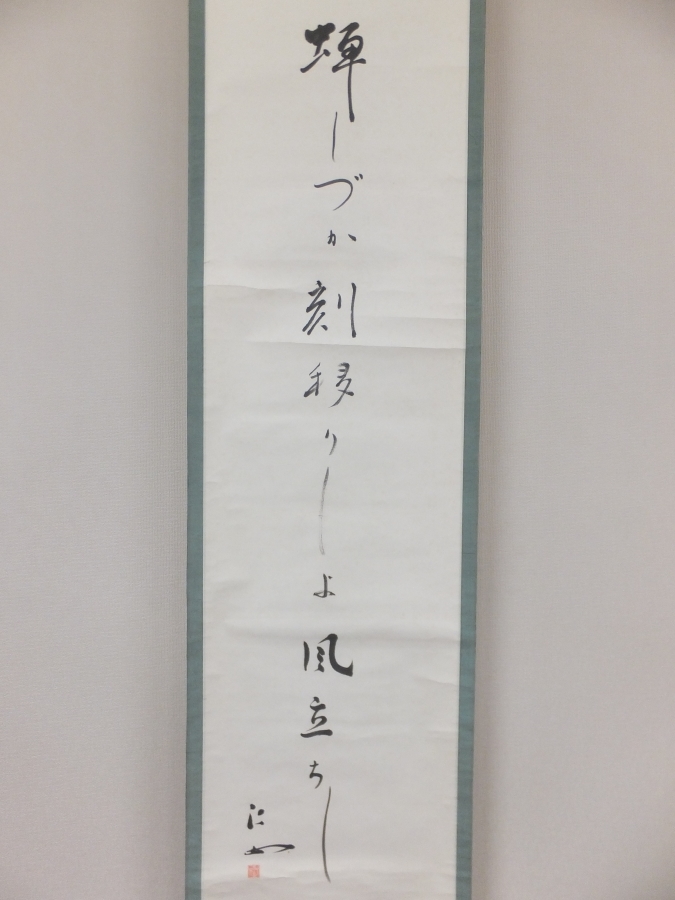 蝉しづか刻移りしよ風立ちし
汀女